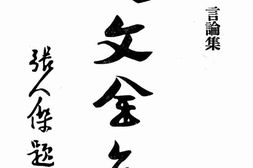 言論集
文全
張人傑題